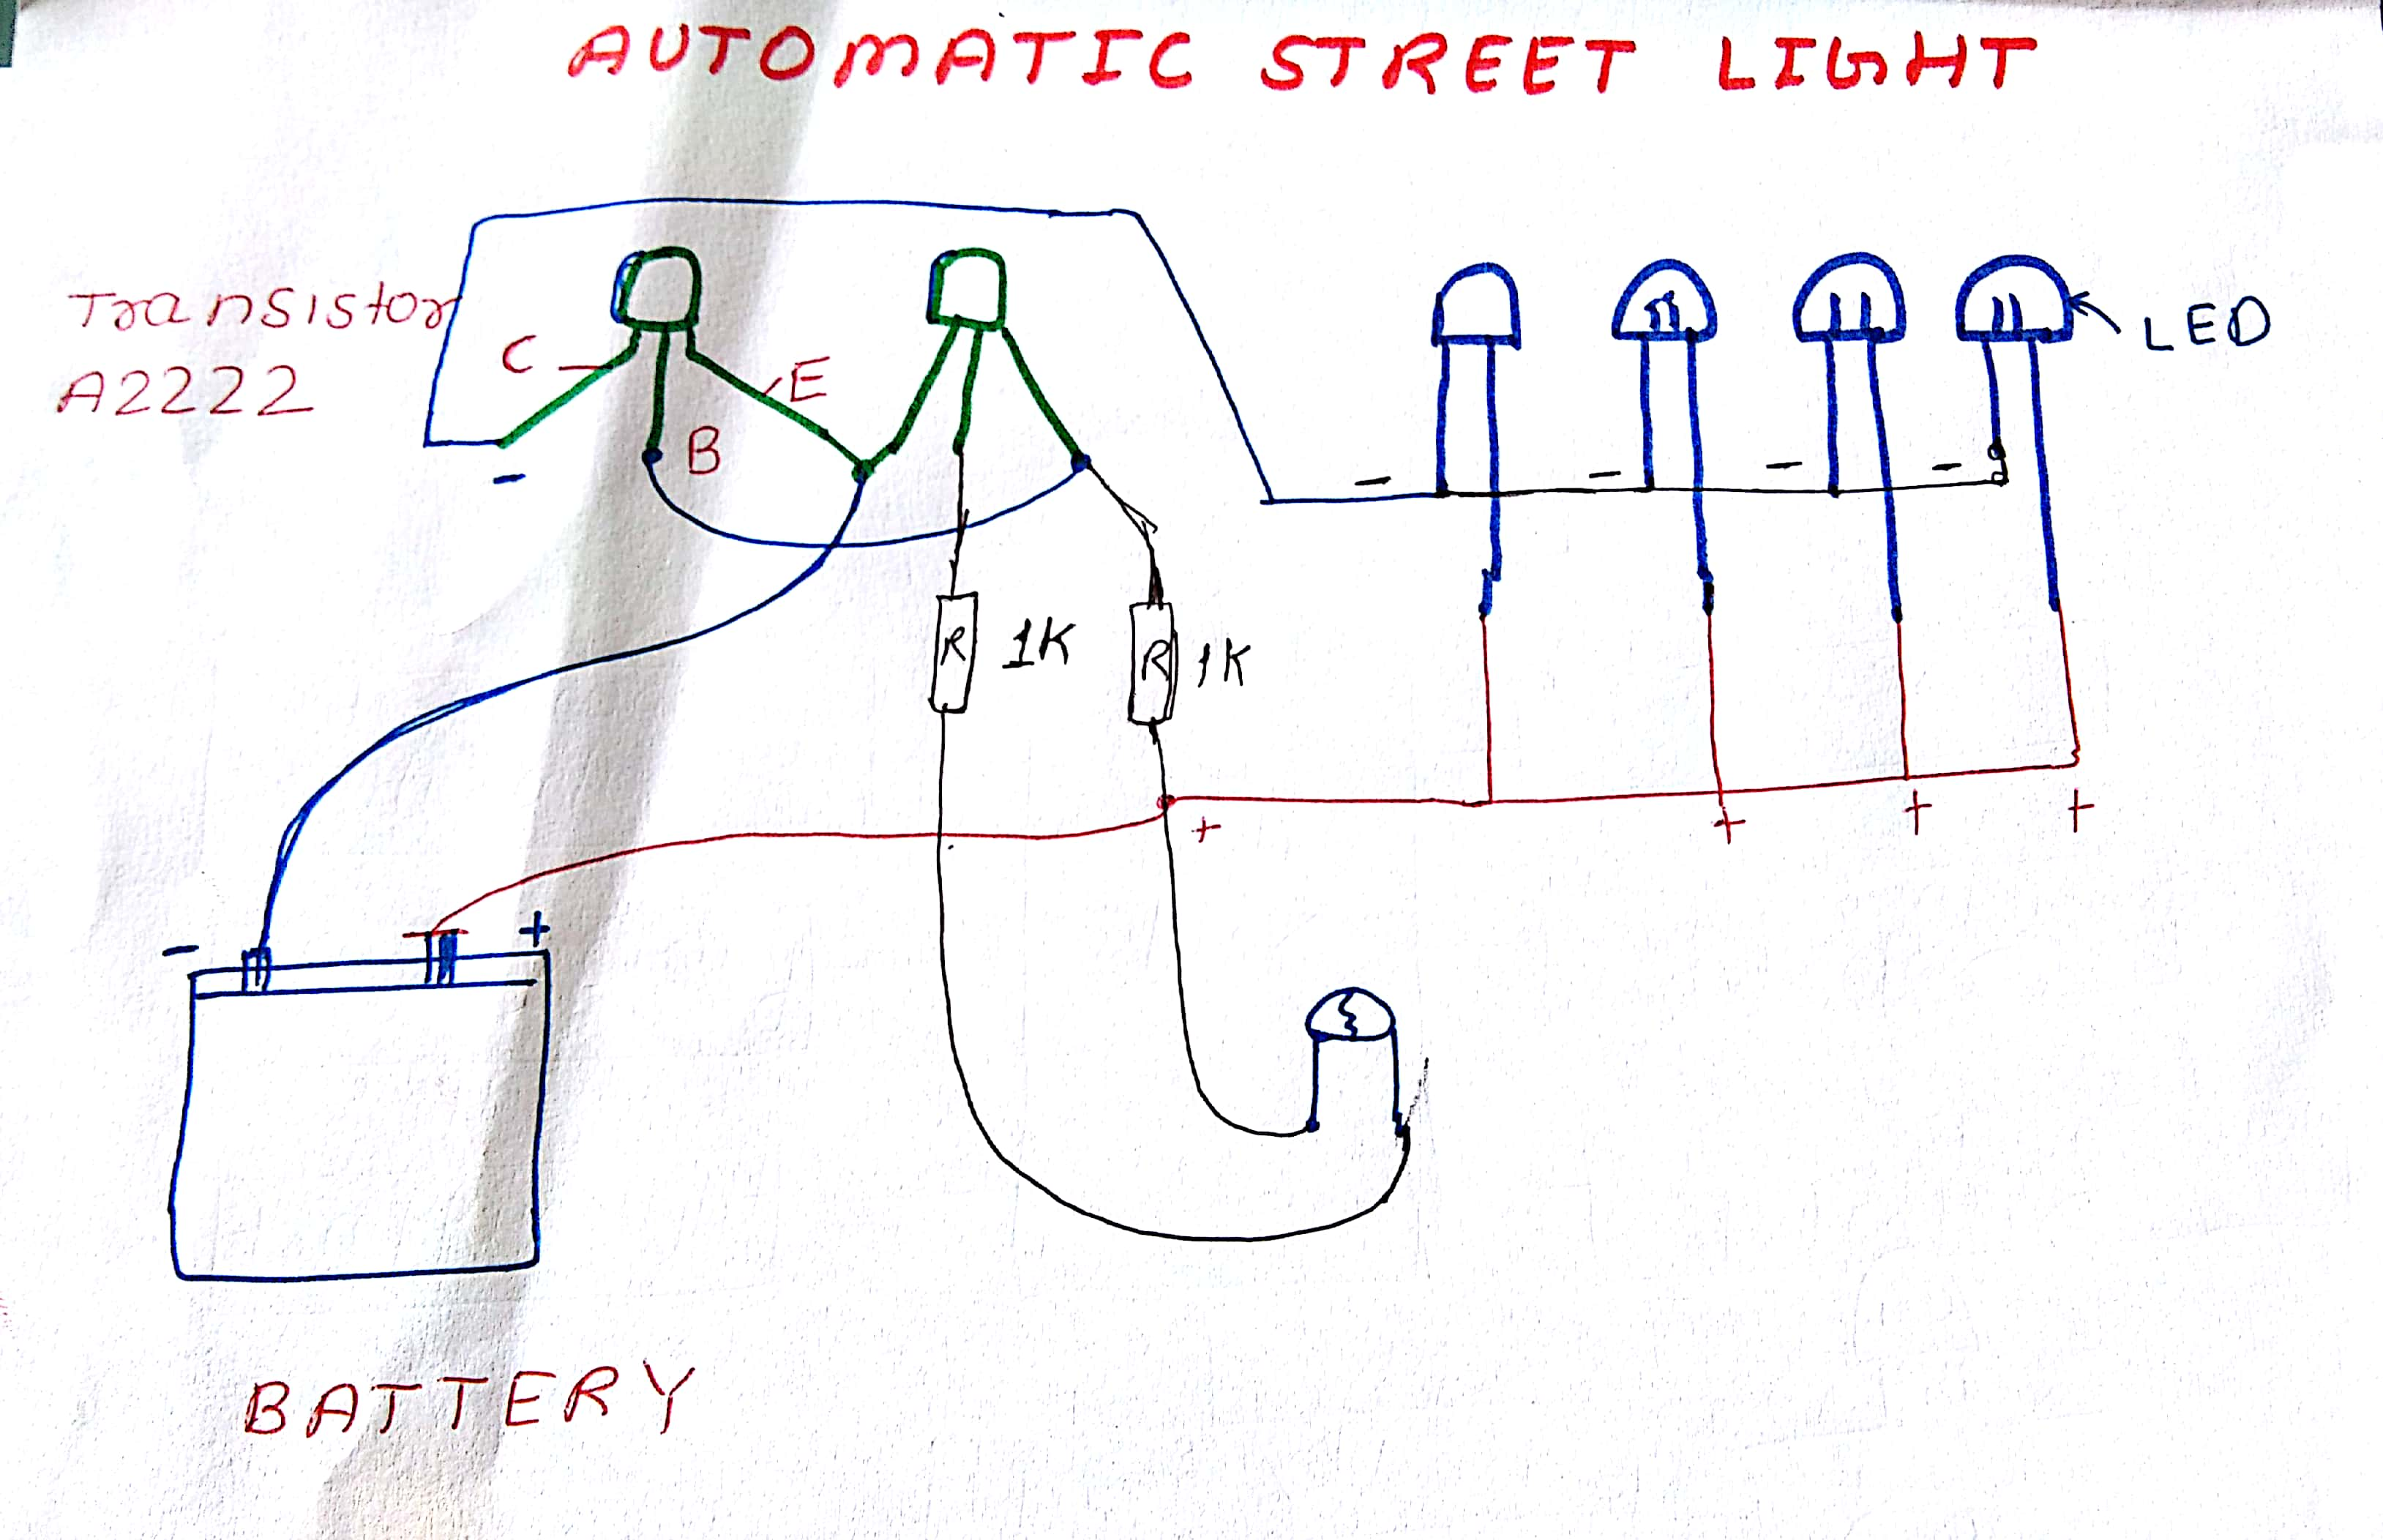 AUTOMATIC STREET LIGHT
Transistor
A2222
C
E
B
-
LED
- - - -
R 1K
R 1K
+ + + +
- +
BATTERY